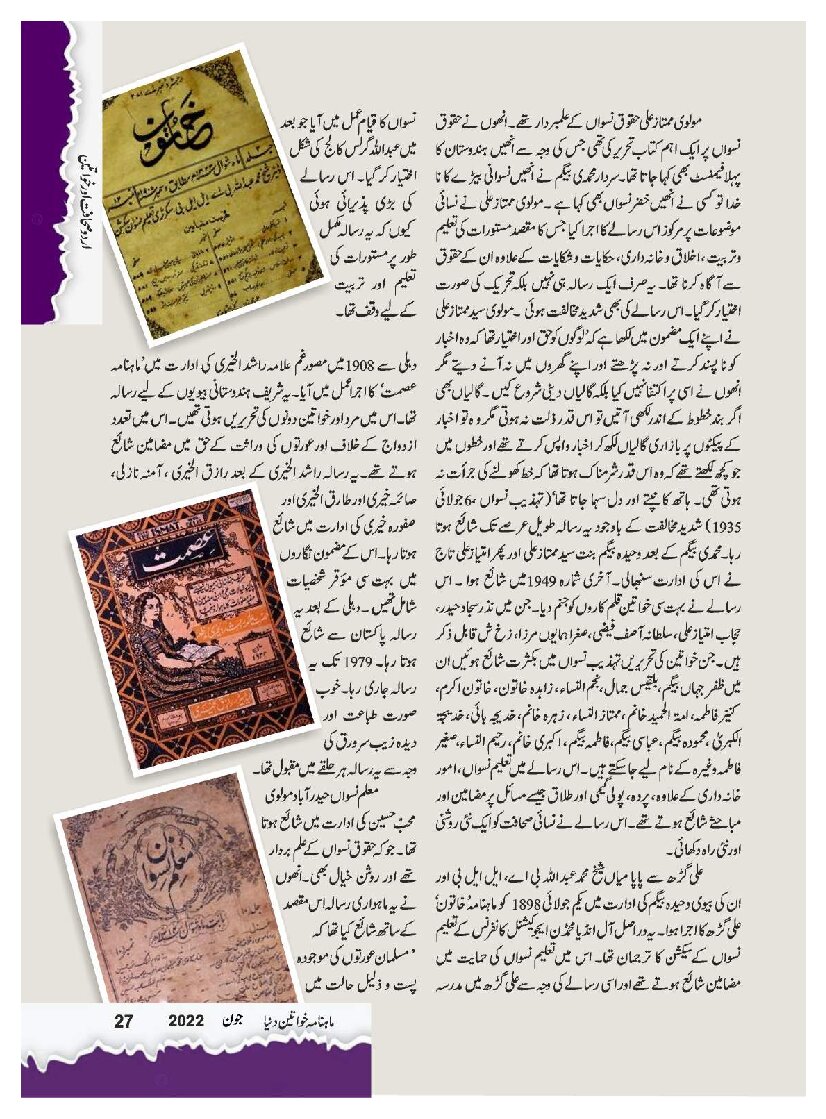 اردو صحافت اور خواتین
مولوی ممتاز علی حقوق نسواں کے علمبردار تھے۔ انھوں نے حقوق
نسواں پر ایک اہم کتاب تحریر کی تھی جس کی وجہ سے انھیں ہندوستان کا
پہلا فیمنسٹ بھی کہا جاتا تھا۔ سردار محمدی بیگم نے انھیں نسوانی بیڑے کا نا
خدا تو کسی نے انھیں خضر نسواں بھی کہا ہے۔ مولوی ممتاز علی نے نسائی
موضوعات پر مرکوز اس رسالے کا اجرا کیا جس کا مقصد مستورات کی تعلیم
وتربیت، اخلاق و خانہ داری، حکایات و شکایات کے علاوہ ان کے حقوق
سے آگاہ کرنا تھا۔ یہ صرف ایک رسالہ ہی نہیں بلکہ تحریک کی صورت
اختیار کر گیا۔ اس رسالے کی بھی شدید مخالفت ہوئی۔ مولوی سید ممتاز علی
نے اپنے ایک مضمون میں لکھا ہے کہ ’لوگوں کو حق اور اختیار تھا کہ وہ اخبار
کو نا پسند کرتے اور نہ پڑھتے اور اپنے گھروں میں نہ آنے دیتے مگر
انھوں نے اسی پر اکتفا نہیں کیا بلکہ گالیاں دینی شروع کیں۔ گالیاں بھی
اگر بند خطوط کے اندر لکھی آتیں تو اس قدر ذلت نہ ہوتی مگر وہ تو اخبار
کے پیکٹوں پر بازاری گالیاں لکھ کر اخبار واپس کرتے تھے اور خطوں میں
جو کچھ لکھتے تھے کہ وہ اس قدر شرمناک ہوتا تھا کہ خط کھولنے کی جرأت نہ
ہوتی تھی۔ ہاتھ کانپتے اور دل سہما جاتا تھا‘ (تہذیب نسواں، 6 جولائی
1935) شدید مخالفت کے باوجود یہ رسالہ طویل عرصے تک شائع ہوتا
رہا۔ محمدی بیگم کے بعد وحیدہ بیگم بنت سید ممتاز علی اور پھر امتیاز علی تاج
نے اس کی ادارت سنبھالی۔ آخری شمارہ 1949 میں شائع ہوا۔ اس
رسالے نے بہت سی خواتین قلم کاروں کو جنم دیا۔ جن میں نذر سجاد حیدر،
حجاب امتیاز علی، سلطانہ آصف فیضی، صغرا ہمایوں مرزا، زخ ش قابل ذکر
ہیں۔ جن خواتین کی تحریریں تہذیب نسواں میں بکثرت شائع ہوئیں ان
میں ظفر جہاں بیگم، بلقیس جمال، نجم النساء، زاہدہ خاتون، خاتون اکرم،
کنیز فاطمہ، امۃ الحمید خانم، ممتاز النساء، زہرہ خانم، خدیجہ بائی، خدیجۃ
الکبریٰ، محمودہ بیگم، عباسی بیگم، فاطمہ بیگم، اکبری خانم، رحیم النساء، صغیر
فاطمہ وغیرہ کے نام لیے جا سکتے ہیں۔ اس رسالے میں تعلیم نسواں، امور
خانہ داری کے علاوہ، پردہ، پولی گیمی اور طلاق جیسے مسائل پر مضامین اور
مباحثے شائع ہوتے تھے۔ اس رسالے نے نسائی صحافت کو ایک نئی روشنی
اور نئی راہ دکھائی۔
علی گڑھ سے پاپا میاں شیخ محمد عبداللہ بی اے، ایل ایل بی اور
ان کی بیوی وحیدہ بیگم کی ادارت میں یکم جولائی 1898 کو ماہنامہ ’خاتون‘
علی گڑھ کا اجرا ہوا۔ یہ دراصل آل انڈیا محمڈن ایجوکیشنل کانفرنس کے تعلیم
نسواں کے سیکشن کا ترجمان تھا۔ اس میں تعلیم نسواں کی حمایت میں
مضامین شائع ہوتے تھے اور اسی رسالے کی وجہ سے علی گڑھ میں مدرسہ
نسواں کا قیام عمل میں آیا جو بعد
میں عبداللہ گرلس کالج کی شکل
اختیار کر گیا۔ اس رسالے
کی بڑی پذیرائی ہوئی
کیوں کہ یہ رسالہ مکمل
طور پر مستورات کی
تعلیم اور تربیت
کے لیے وقف تھا۔
دہلی سے 1908 میں مصور غم علامہ راشد الخیری کی ادارت میں ’ماہنامہ
عصمت‘ کا اجرا عمل میں آیا۔ یہ شریف ہندوستانی بیویوں کے لیے رسالہ
تھا۔ اس میں مرد اور خواتین دونوں کی تحریریں ہوتی تھیں۔ اس میں تعدد
ازدواج کے خلاف اور عورتوں کی وراثت کے حق میں مضامین شائع
ہوتے تھے۔ یہ رسالہ راشد الخیری کے بعد رازق الخیری، آمنہ نازلی،
صائمہ خیری اور طارق الخیری اور
صفورہ خیری کی ادارت میں شائع
ہوتا رہا۔ اس کے مضمون نگاروں
میں بہت سی مؤقر شخصیات
شامل تھیں۔ دہلی کے بعد یہ
رسالہ پاکستان سے شائع
ہوتا رہا۔ 1979 تک یہ
رسالہ جاری رہا۔ خوب
صورت طباعت اور
دیدہ زیب سرورق کی
وجہ سے یہ رسالہ ہر حلقے میں مقبول تھا۔
معلم نسواں حیدرآباد مولوی
محب حسین کی ادارت میں شائع ہوتا
تھا۔ جو کہ حقوق نسواں کے علم بردار
تھے اور روشن خیال بھی۔ انھوں
نے یہ ماہواری رسالہ اس مقصد
کے ساتھ شائع کیا تھا کہ
’مسلمان عورتوں کی موجودہ
پست و ذلیل حالت میں
خاتون
ISMAT
عصمت
معلم نسواں
ماہنامہ خواتین دنیا جون 2022 27